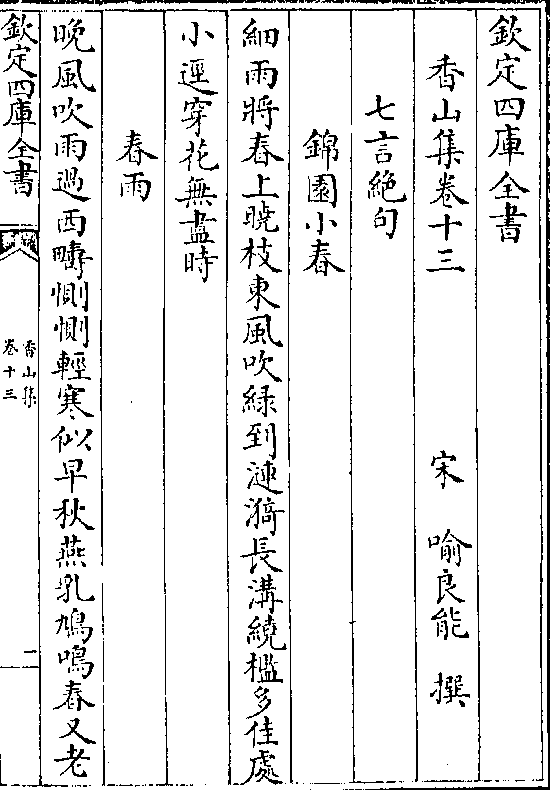 欽定四庫全書
香山集卷十三 宋 喻良能 撰
七言絶句
錦園小春
細雨將春上曉枝東風吹緑到漣漪長溝繞檻多佳處
小逕穿花無盡時
春雨
晚風吹雨過西疇惻惻輕寒似早秋燕乳鳩鳴春又老
欽定四庫全書
香山集
卷十三
一